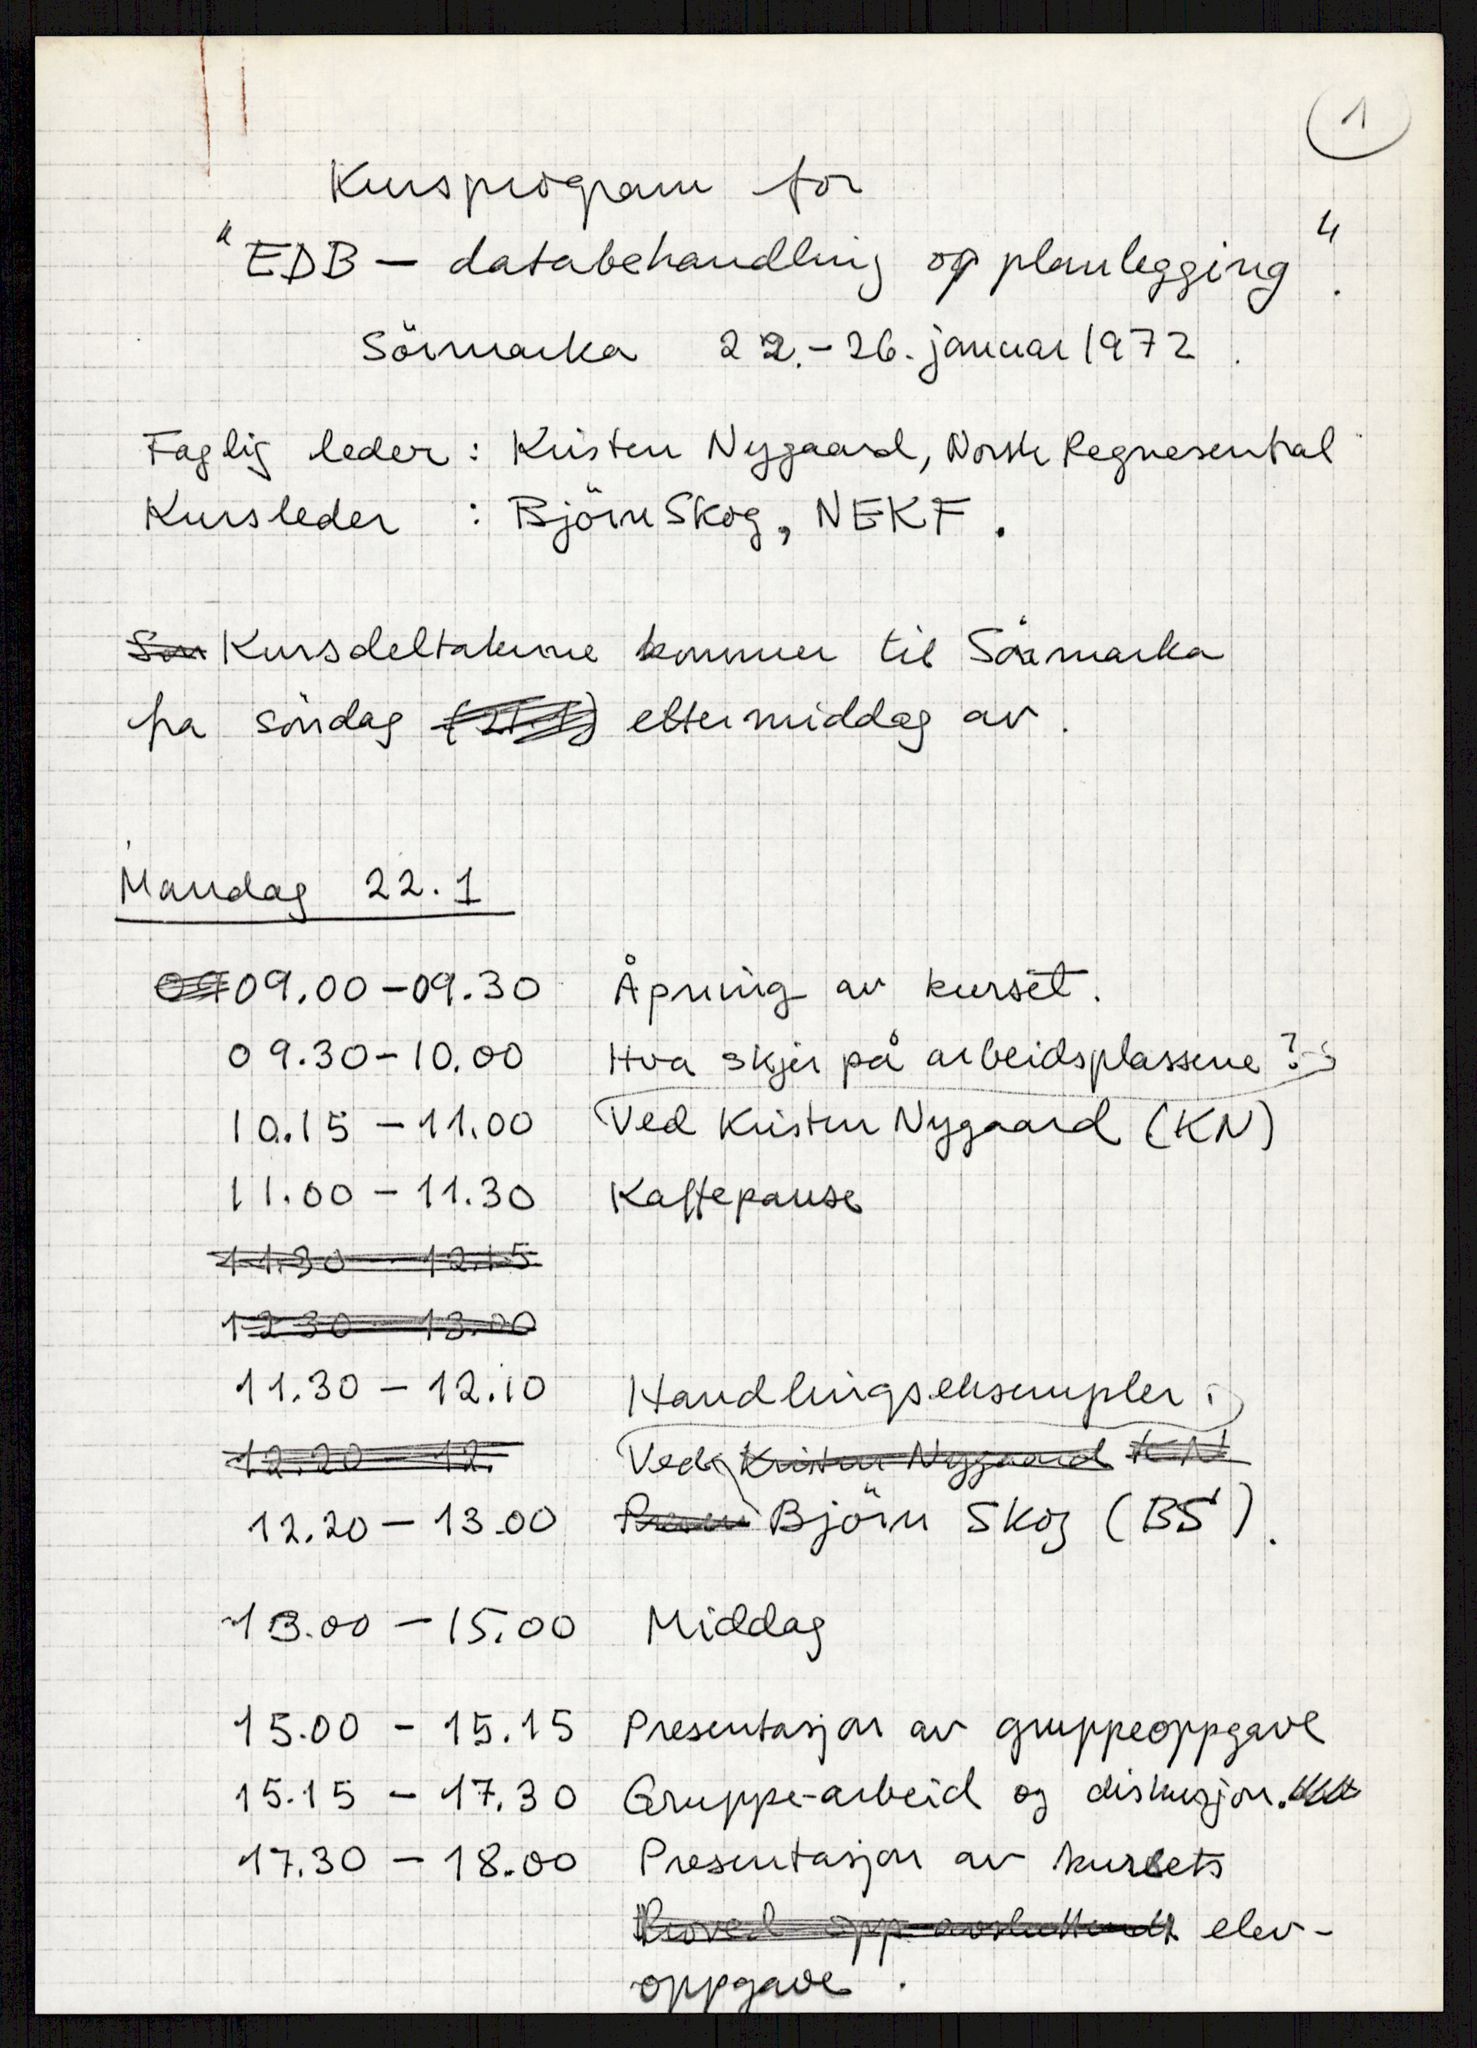 1
Kursprogram for
"EDB – databehandling og planlegging".
Sörmarka 22.-26. januar 1972.
Faglig leder : Kristen Nygaard, Norsk Regnesentral
Kursleder : Björn Skog, NEKF.
Kursdeltakerne kommer til Sörmarka
på söndag ettermiddag av.
Mandag 22.1
09.00 – 09.30 Åpning av kurset.
09.30 – 10.00 Hva skjer på arbeidsplassene?
10.15 – 11.00 Ved Kristen Nygaard (KN)
11.00 – 11.30 Kaffepause
11.30 – 12.15
12.30 – 13.00
11.30 – 12.10 Handlingseksempler.
12.20 – 12. Ved Kristen Nygaard KN
12.20 – 13.00 Björn Skog (BS).
13.00 – 15.00 Middag
15.00 – 15.15 Presentasjon av gruppeoppgave
15.15 – 17.30 Gruppe-arbeid og diskusjon.
17.30 – 18.00 Presentasjon av kursets
elev-
oppgave.